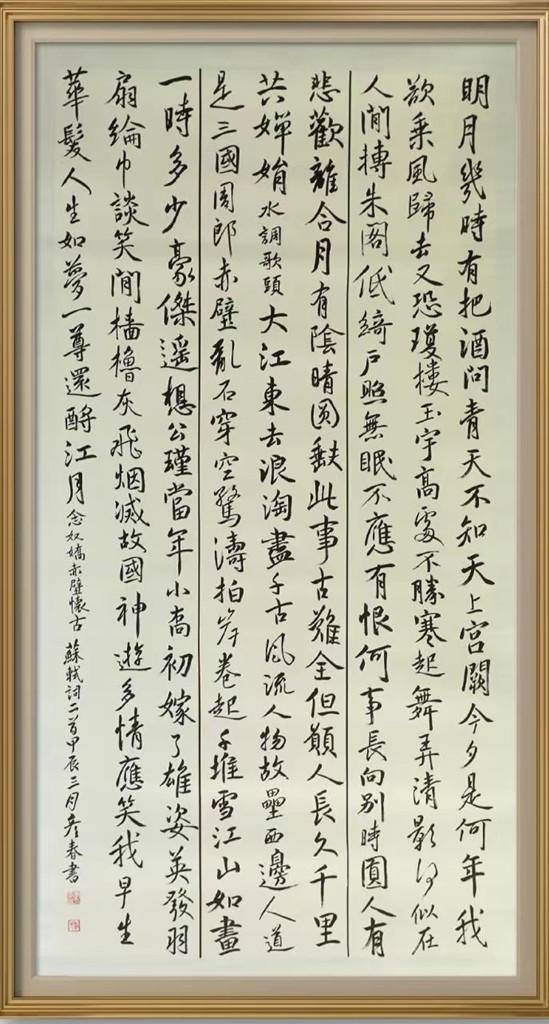 明月幾時有把酒问青天不知天上宫闕今夕是何年我
欲乘風歸去又恐瓊楼玉宇高處不勝寒起舞弄清影何似在
人间轉朱阁低綺户照無眠不應有恨何事長向别時圓人有
悲歡離合月有陰晴圆缺此事古難全但願人長久千里
共嬋娟水調歌頭大江東去浪淘盡千古風流人物故壘西邊人道
是三國周郎赤壁亂石穿空驚濤拍岸卷起千堆雪江山如畫
一時多少豪傑遥想公瑾當年小喬初嫁了雄姿英發羽
扇綸巾談笑间檣櫓灰飛烟滅故國神遊多情應笑我早生
華髮人生如夢一尊還酹江月念奴嬌赤壁懷古蘇軾词二首甲辰三月彦春書